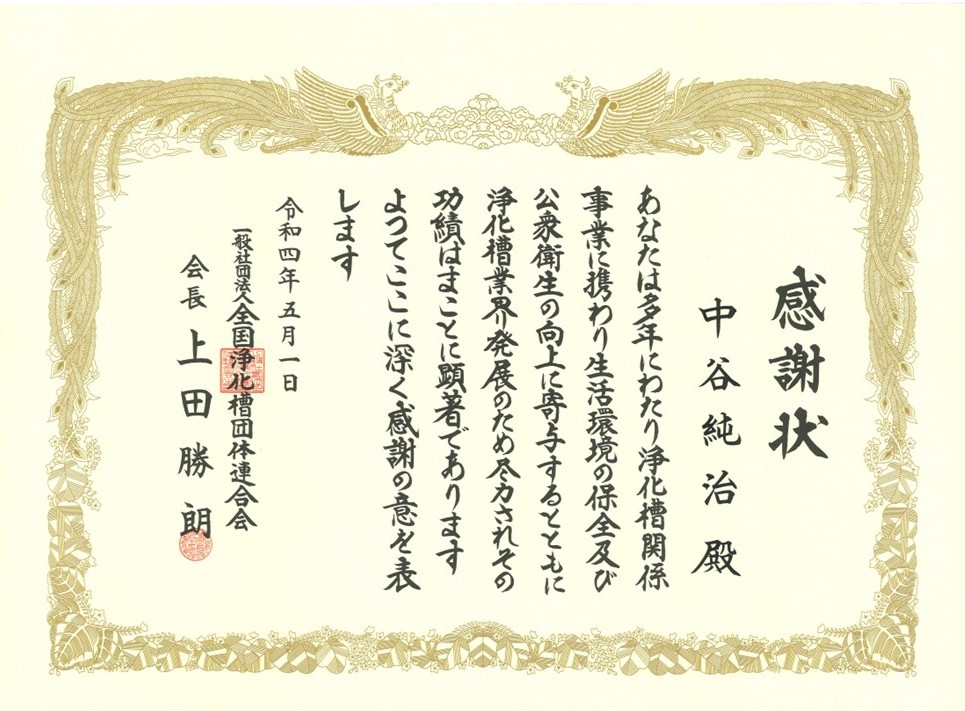 感謝状
中谷純治殿
あなたは多年にわたり浄化槽関係
事業に携わり生活環境の保全及び
公衆衛生の向上に寄与するとともに
浄化槽業界発展のため尽力されその
功績はまことに顕著であります
よつてここに深く感謝の意を表
します
令和四年五月一日
一般社団法人全国浄化槽団体連合会
会長上田勝朗